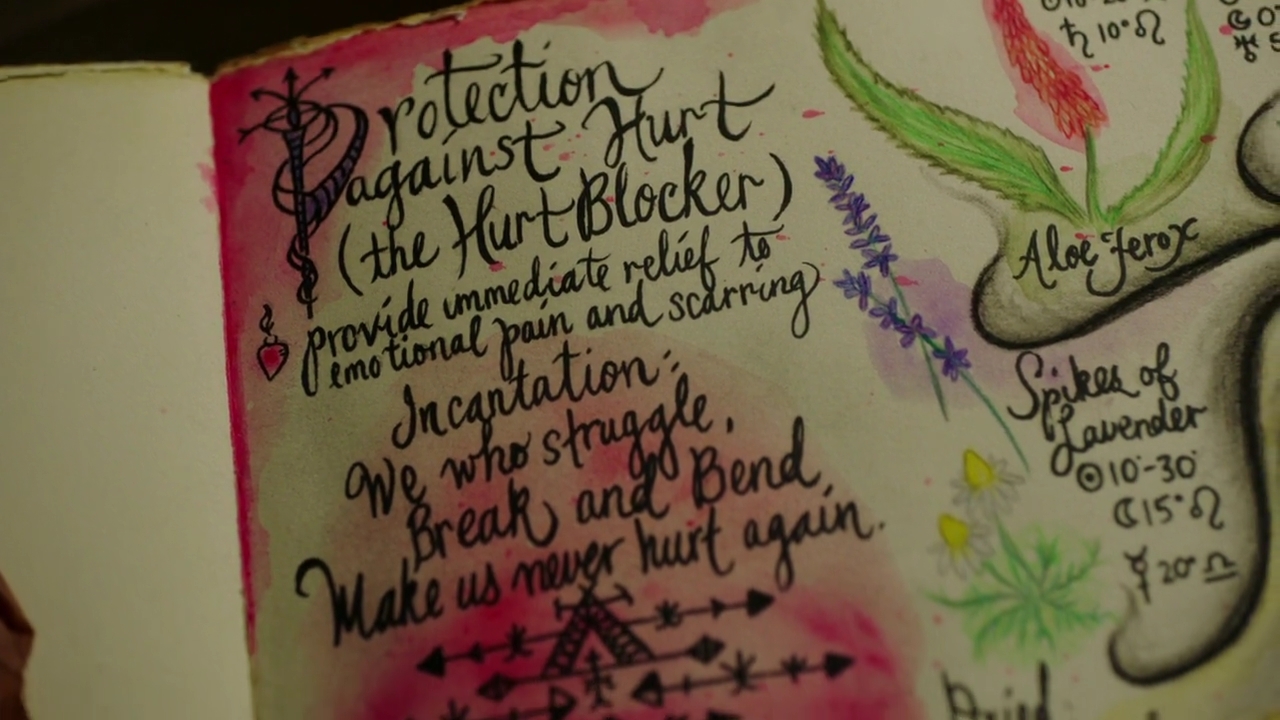 Protection
against Hurt
(the Hurt Blocker)
provide immediate relief to
emotional pain and scarring
Incantation:
We who struggle,
Break and Bend,
Make us never hurt again.
♄ 10° ♌
Aloe ferox
Spikes of
Lavender
☉ 10°-30°
☾ 15° ♌
☿ 20° ♎
Dried